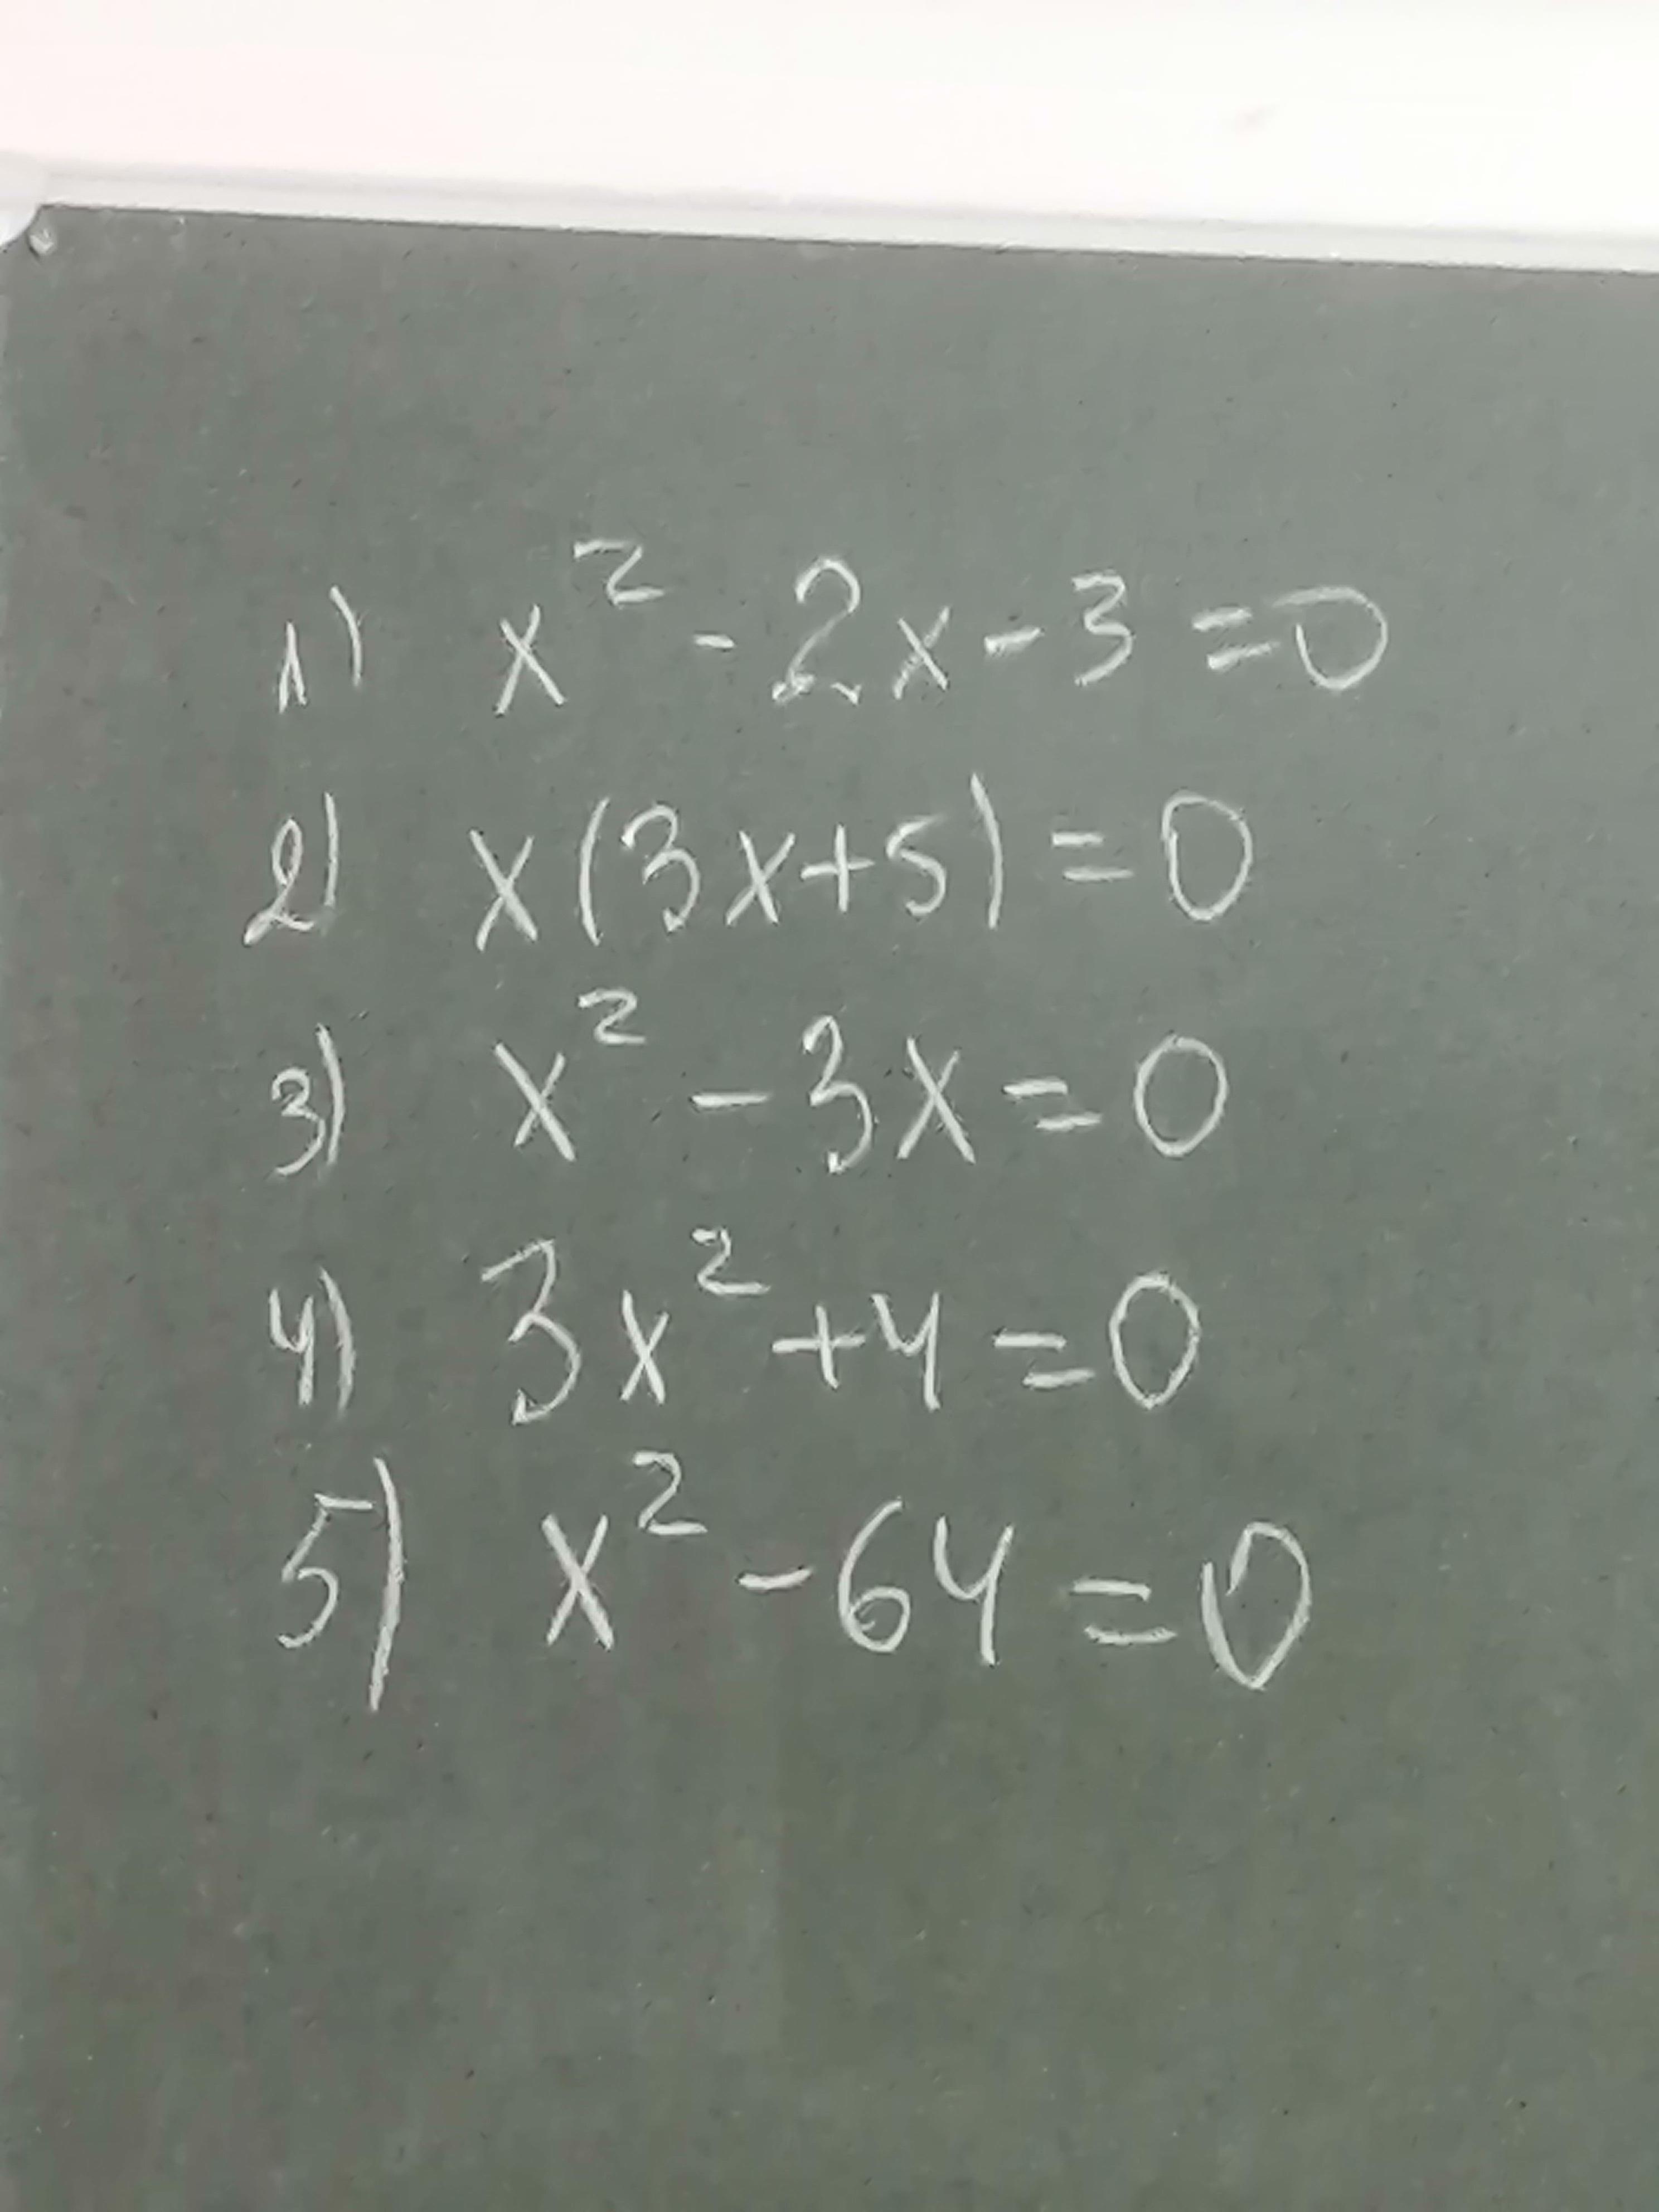 1) x² - 2x - 3 = 0
2) x(3x+5) = 0
3) x² - 3x = 0
4) 3x² + 4 = 0
5) x² - 64 = 0